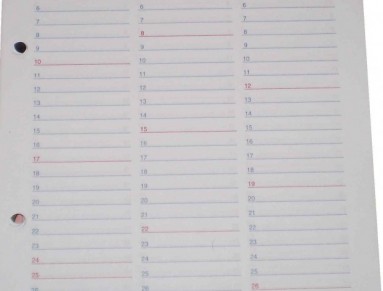 6 6 6
7 7 7
8 8 8
9 9 9
10 10 10
11 11 11
12 12 12
13 13 13
14 14 14
15 15 15
16 16 16
17 17 17
18 18 18
19 19 19
20 20 20
21 21 21
22 22 22
23 23 23
24 24 24
25 25 25
26 26 26